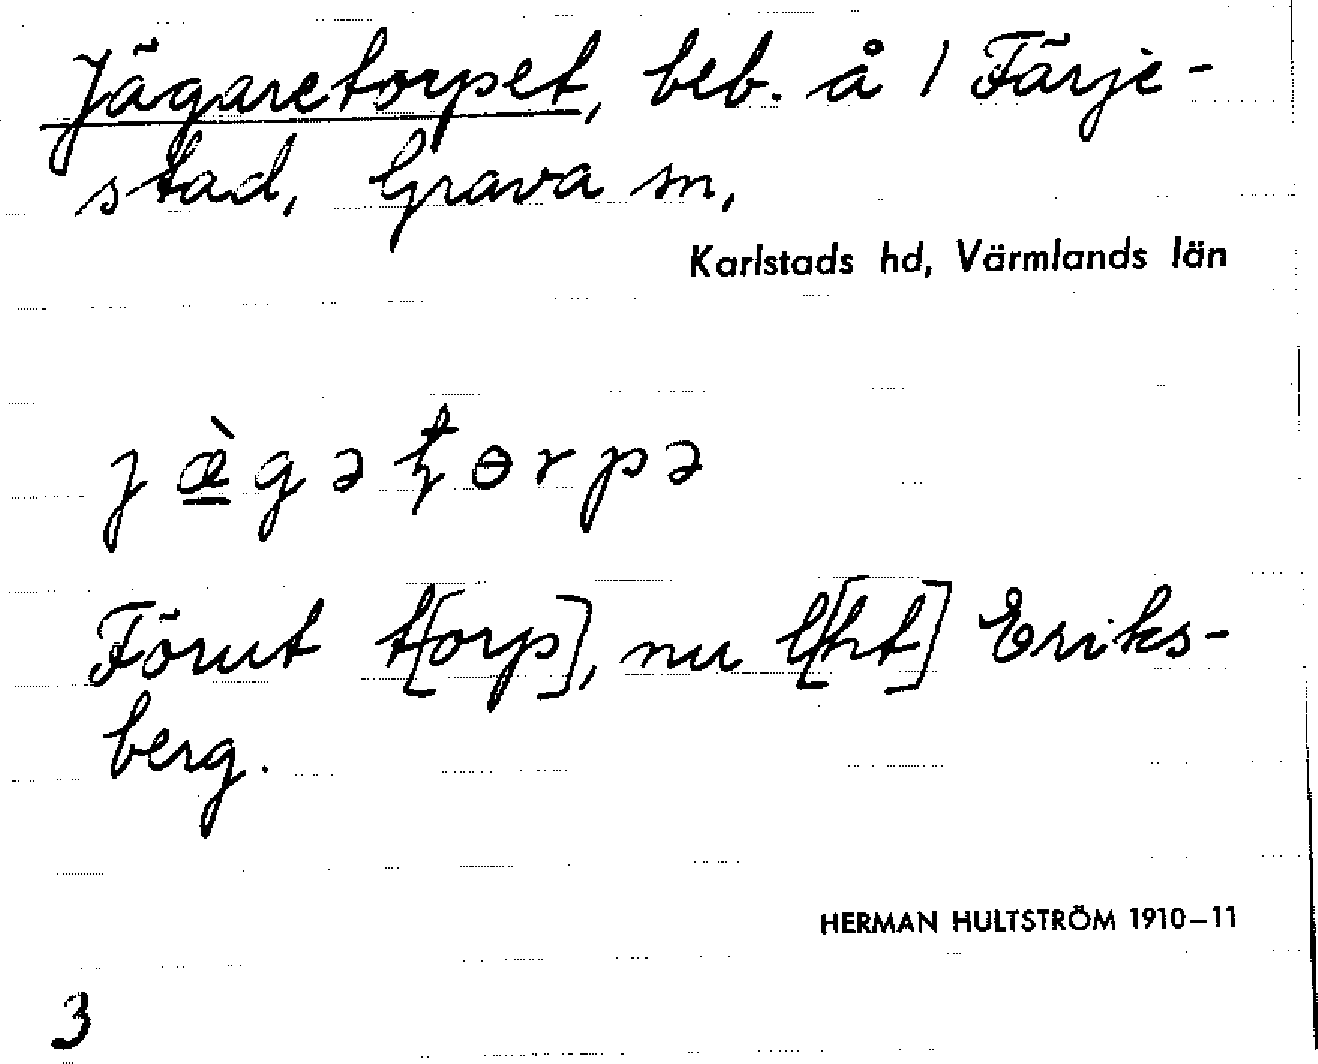 Jägaretorpet, beb. å 1 Färje-
stad, Grava sn,
Karlstads hd, Värmlands län
jæ̲̀gəʈɵrpə
Förut t[orp], nu l[ht] Eriks-
berg.
HERMAN HULTSTRÖM 1910–11
3